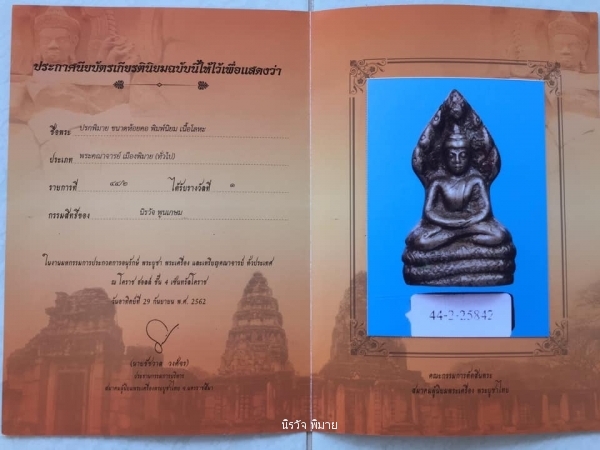 ประกาศนียบัตรเกียรตินิยมฉบับนี้ให้ไว้เพื่อแสดงว่า
ชื่อพระ ปรกพิมาย ขนาดห้อยคอ พิมพ์นิยม เนื้อโลหะ
ประเภท พระคณาจารย์ เมืองพิมาย (ทั่วไป)
รายการที่ ๔๔/๒ ได้รับรางวัลที่ ๑
กรรมสิทธิ์ของ นิรวัจ พูนเกษม
ในงานมหกรรมการประกวดการอนุรักษ์ พระบูชา พระเครื่อง และเหรียญคณาจารย์ ทั่วประเทศ
ณ โคราช ฮอลล์ ชั้น 4 เซ็นทรัลโคราช
วันอาทิตย์ที่ 29 กันยายน พ.ศ. 2562
ประธานกรรมการบริหาร
44-2-25842
คณะกรรมการตัดสินพระ
สมาคมผู้นิยมพระเครื่อง พระบูชาไทย
นิรวัจ พิมาย